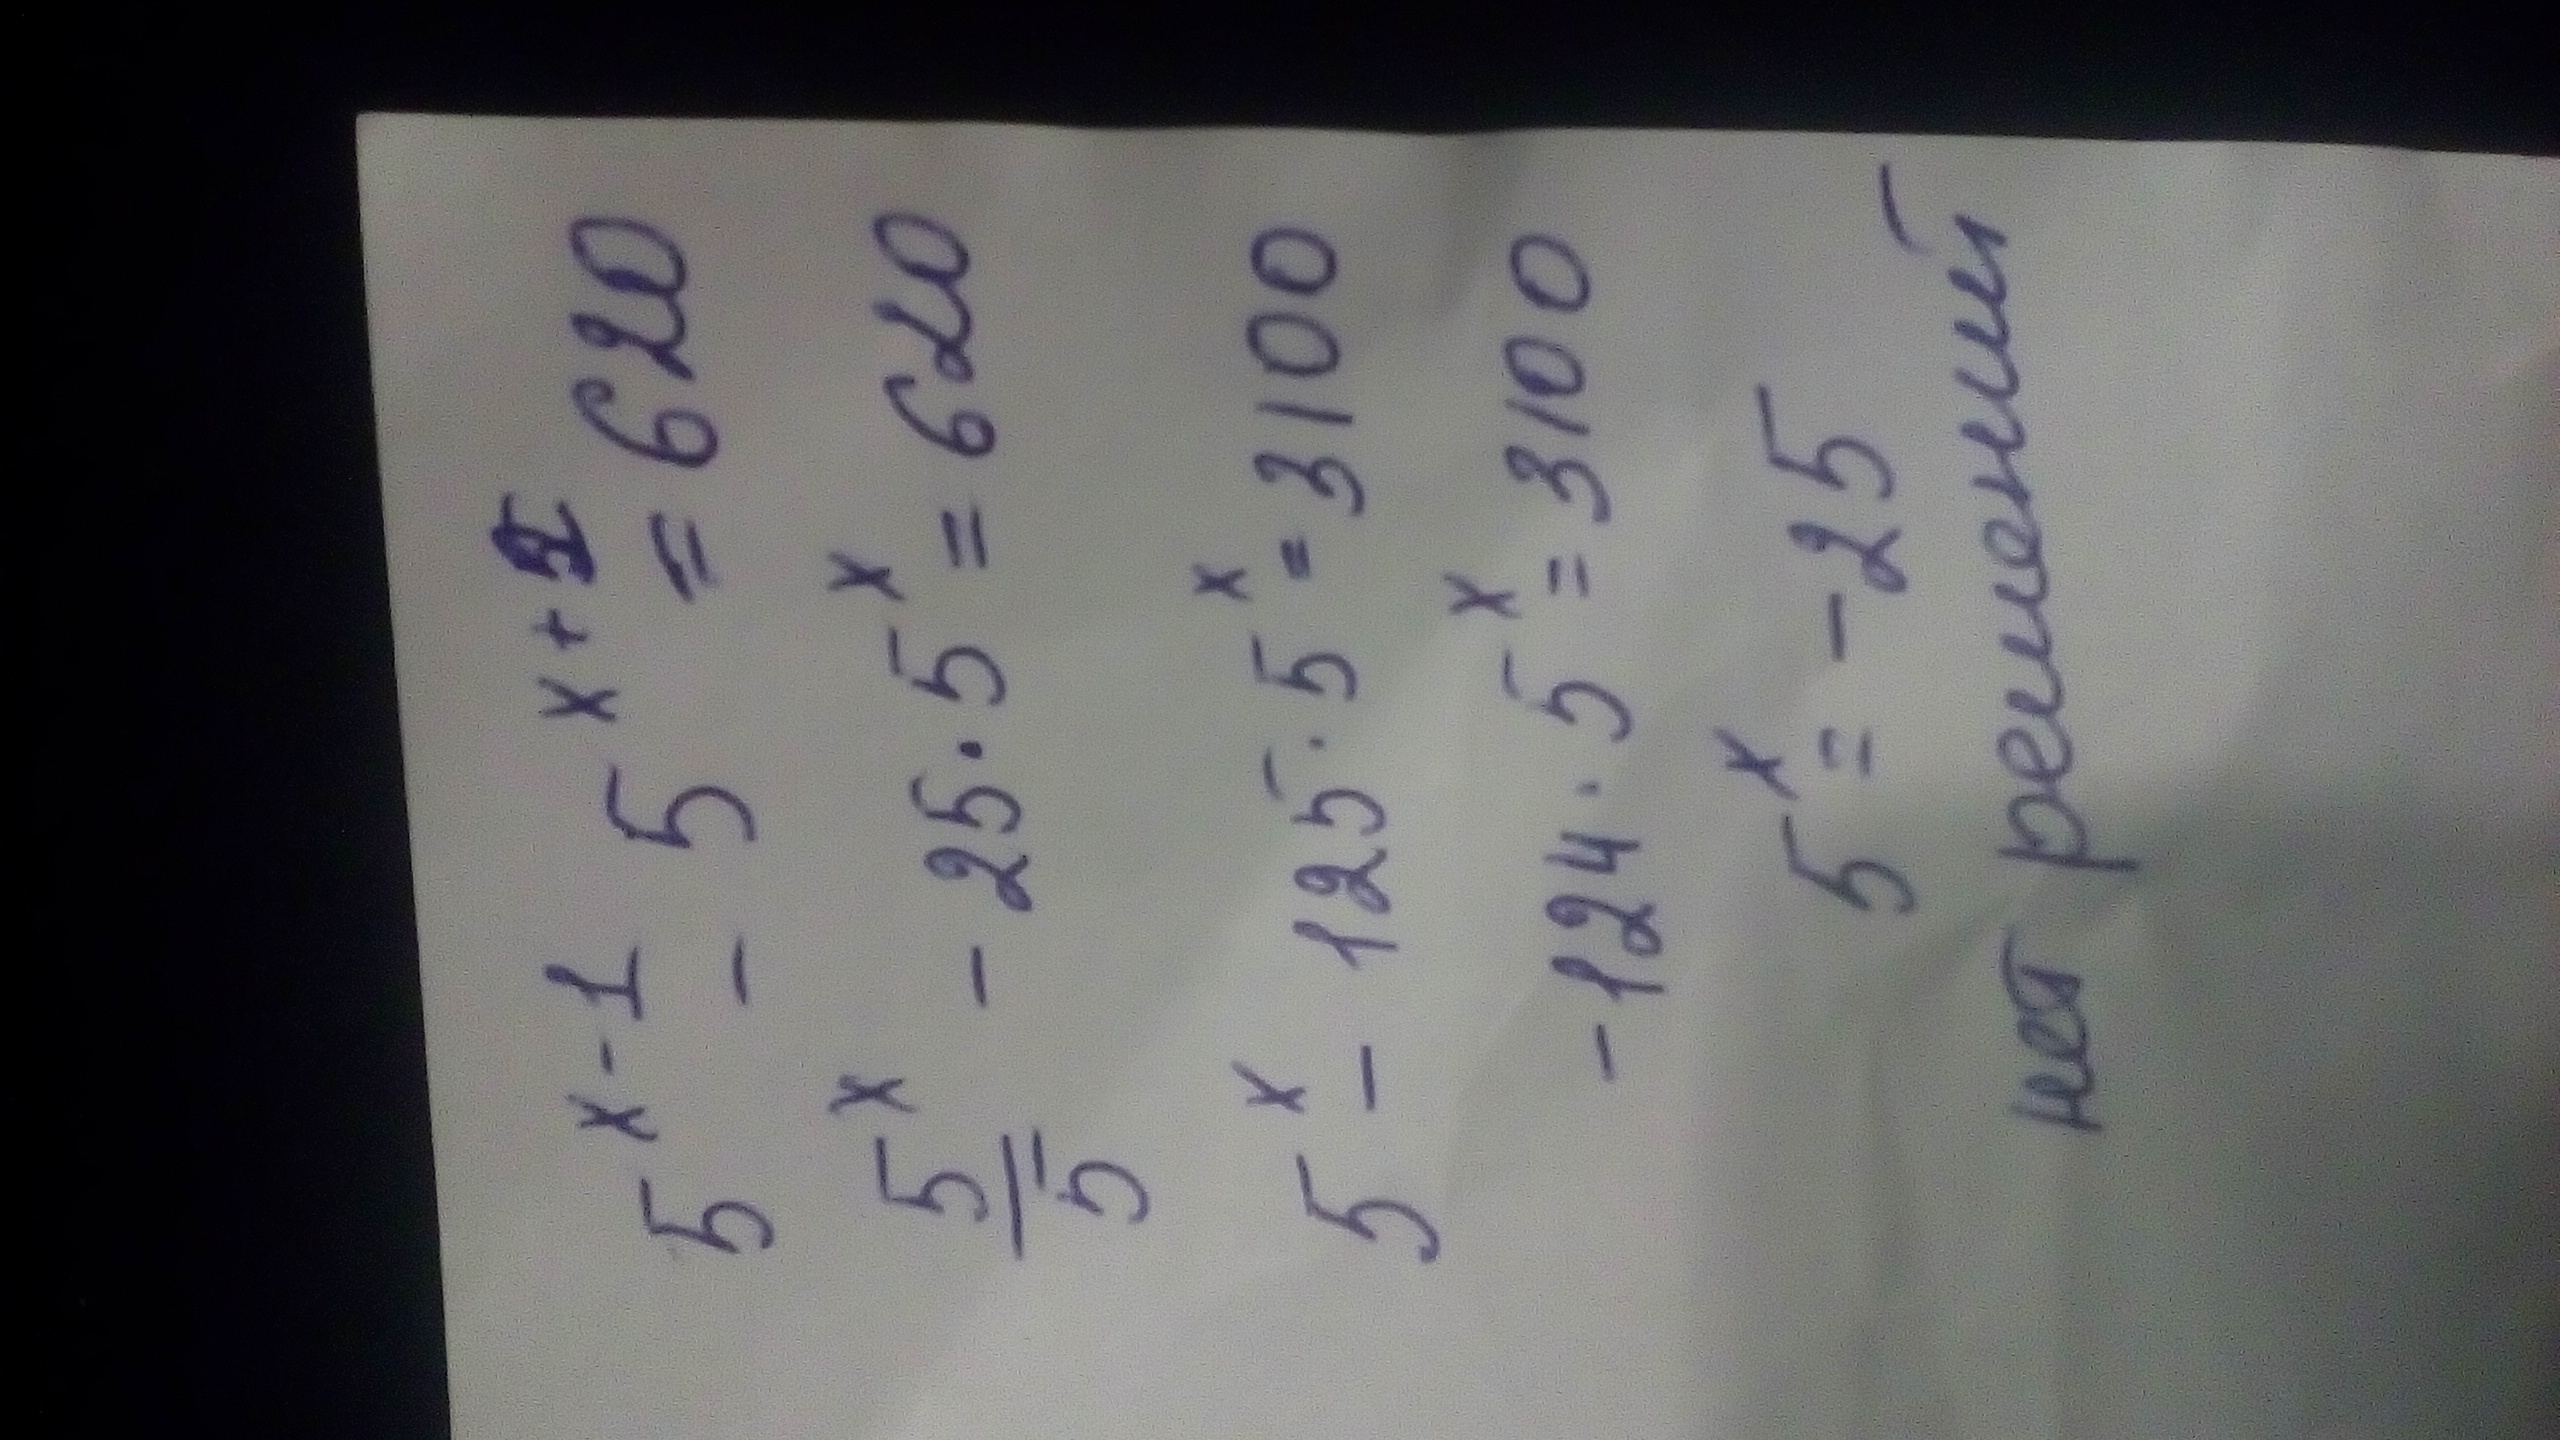 5^x-1 - 5^x+2 = 620
5^x/5 - 25·5^x = 620
5^x - 125·5^x = 3100
-124·5^x = 3100
5^x = -25
нет решений